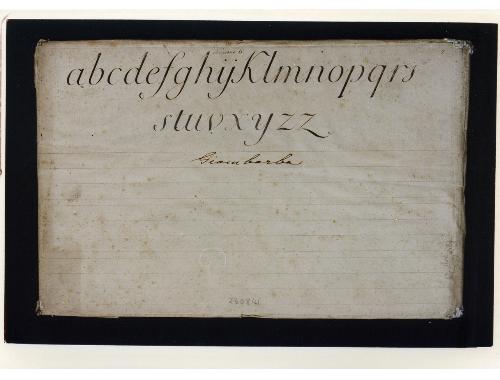 abcdefghijKlmnopqrs
stuvxyzz
Giambarba